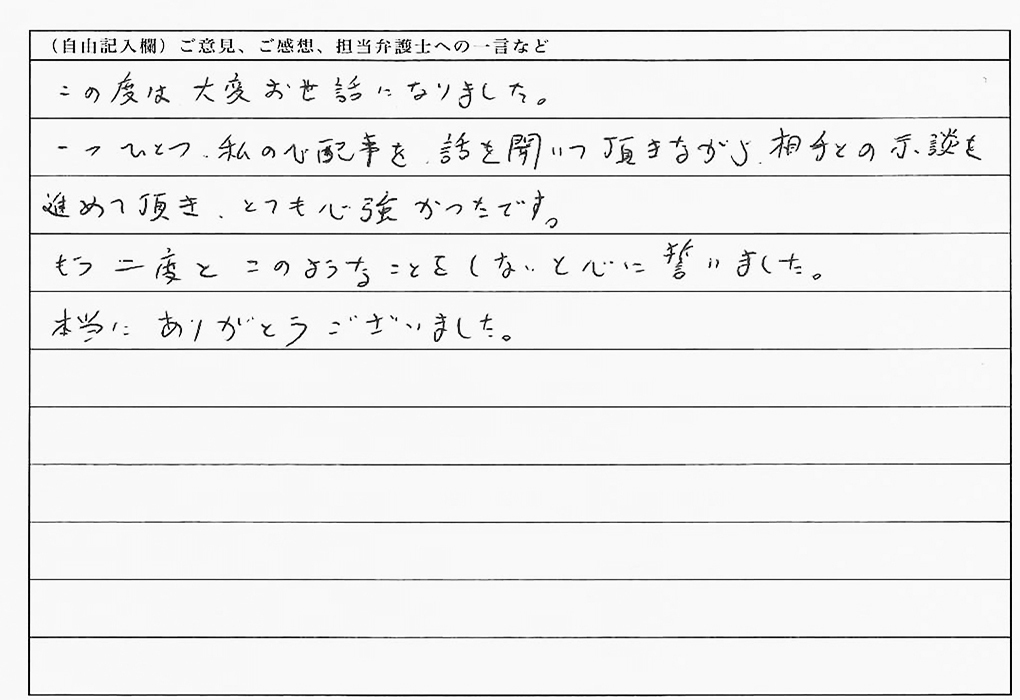 （自由記入欄）ご意見、ご感想、担当弁護士への一言など
この度は大変お世話になりました。
一つひとつ、私の心配事を、話を聞いて頂きながら、相手との示談を
進めて頂き、とても心強かったです。
もう二度とこのようなことをしないと心に誓いました。
本当にありがとうございました。